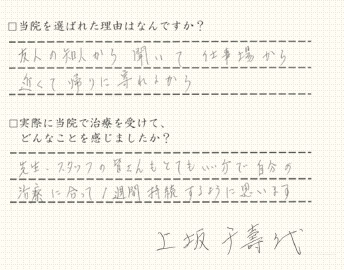 □当院を選ばれた理由はなんですか？
友人の知人から 聞いて 仕事場から
近くて 帰りに 寄れるから
□実際に当院で治療を受けて、
どんなことを感じましたか？
先生・スタッフの皆さんもとてもいい方で 自分の
治療に合って 1週間 持続するように思います
上坂 千壽代